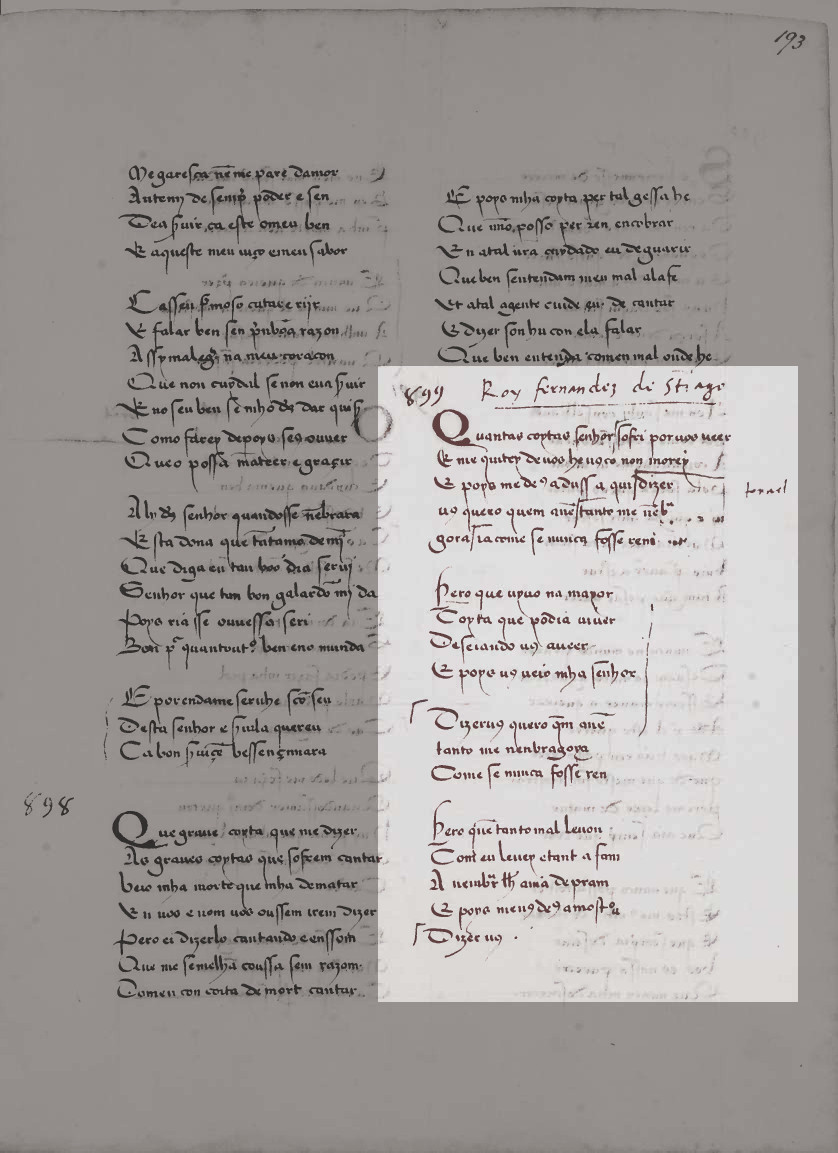 193
Me garesca nẽ me parẽ damor
Autemy de senp̃ poder e sen
Dea s̃uir ca este omeu ben
E aqueste meu uiço emeu sabor
Casseu fremoso catar e rijr
E falar ben sen p̃ bõa razon
Assy malegr̃ na meu coraçon
Que non cuydal se non eua s̃uir
E no seu ben se mho d's dar quis
Como farey depoys seo ouuer
Queo possa mãteer e graçir
Ay d's senhor quandosse nẽbrara
Esta dona que tãtamo de mĩ
Que diga eu tan boo dia serui
Senhor que tan bon galardõ mj da
Poys ria sse ouuesse seri
Bon p̃ quantouto ben eno munda
E porendame seruhe sẽo seu
Desta senhor e s̃uila quereu
Ca bon s̃uiçẽ bessenginara
898
Que graue coyta que me dizer
As graues coytas que sofrem cantar
beio mha morte que mha de matar
En uos e nom uos oussem irem dizer
Pero ei dizerlo cantando e enssom
Que me semelhã coussa sem razom
Domeu con coita de mort cantar
E poys mha coyta per tal gessa he
Que nno posso per ren encobrar
En atal ura cuydado eu deguarir
Que ben sentendam meu mal alafe
Et atal agente cuide eu de cantar
E dizer son hu con ela falar
Que ben entenda comen mal onde he
899 Roy fernandez de Stiago
Quantas coytas senhor sofri por uos ueer
E me quitey de uos he uyço non morey
E poys me de9 aduss a quis dizer
u9 quero quem auẽ tanto me nẽbr̃
gora sia come se nunca fosse reni
tornel
Pero que uyuo na mayor
Coyta que podia uiuer
Deseiando u9 aueer
E poys u9 ueio mha senhor
Dizeru9 quero q̃m auẽ
tanto me nenbragoya
Come se nunca fosse ren
Pero que tanto mal leuou
Com eu leuey etant a fam
A nembr̃ lh amia de pram
E poys meu9 de9 amostou
Dizer u9